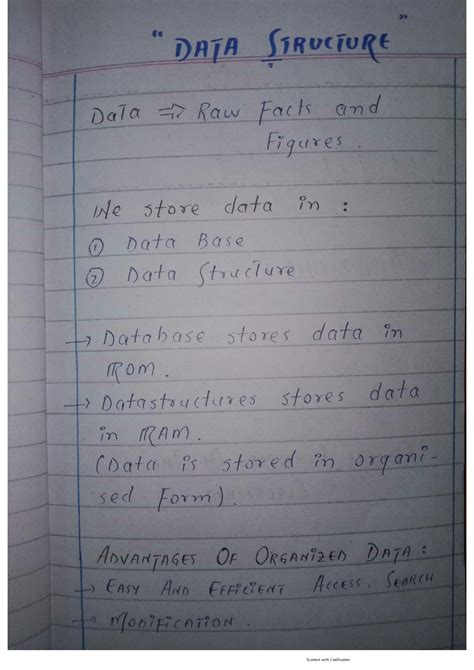 " DATA STRUCTURE "
Data ⇒ Raw Facts and
Figures.
We store data in :
① Data Base
② Data Structure
→ Database stores data in
ROM.
→ Datastructures stores data
in RAM.
(Data is stored in organi-
sed Form).
ADVANTAGES OF ORGANIZED DATA :
→ EASY AND EFFICIENT ACCESS, SEARCH
→ MODIFICATION.
Scanned with CamScanner